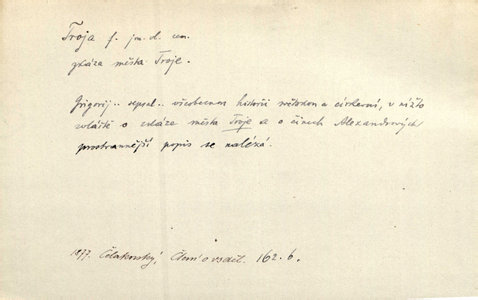 Troja f. jm. vl. cen.
zkáza města Troje.
Grigorij.. sepsal.. všeobecnou historii světskou a církevní, v nížto
zvláště o zkáze města Troje a o činech Alexandrových
prostrannější popis se nalézá.
1877. Čelakovský, Čtení o vzděl. 162. b.